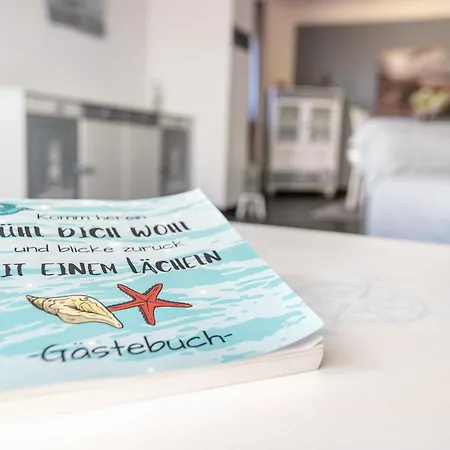 Komm herein
ÜHL DICH WOHL
und blicke zurück
IT EINEM LÄCHELN
-Gästebuch-